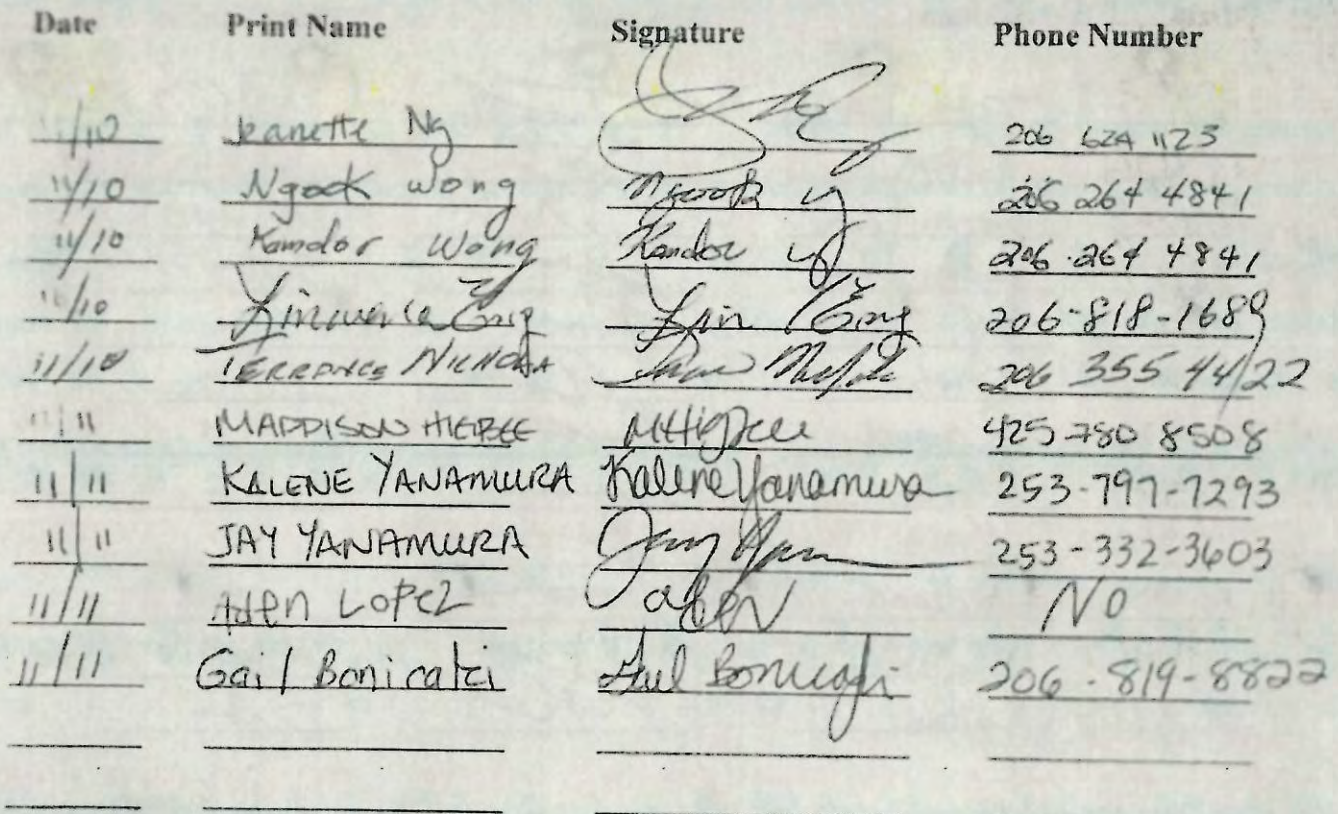 Date Print Name Signature Phone Number
11/10 Jeanette Ng 206 624 1123
11/10 Ngook Wong 206 264 4841
11/10 Kamdor Wong Kamdor 206.264 4841
11/10 Lin 206-818-1689
11/10 TERRANCE 206 355 4422
11/11 MADDISON HIGBEE MHigbee 425 780 8508
11/11 KALENE YANAMURA Kalene Yanamura 253-797-7293
11/11 JAY YANAMURA Jay 253-332-3603
11/11 Lopez NO
11/11 Gail Bonicalzi Gail Bonicalzi 206-819-8822